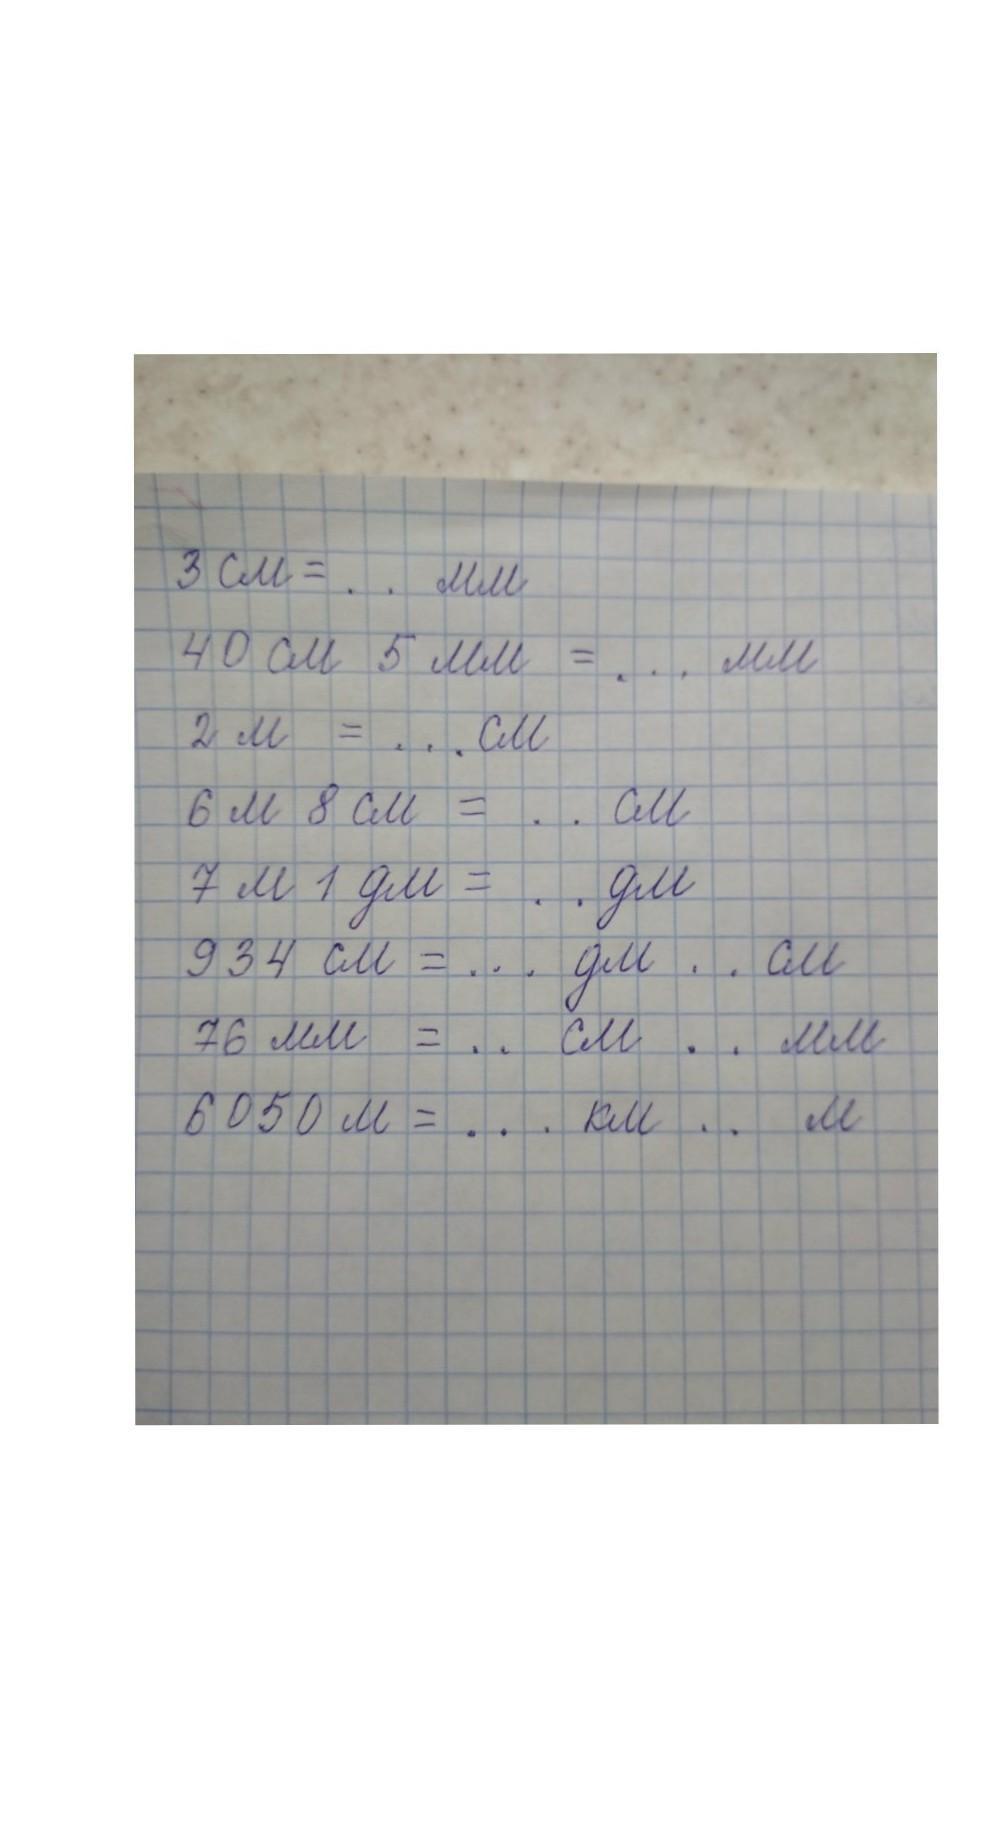 3 см = . . мм
40 см 5 мм = . . . мм
2 м = . . . см
6 м 8 см = . . см
7 м 1 дм = . . дм
934 см = . . . дм . . см
76 мм = . . см . . мм
6050 м = . . . км . . м